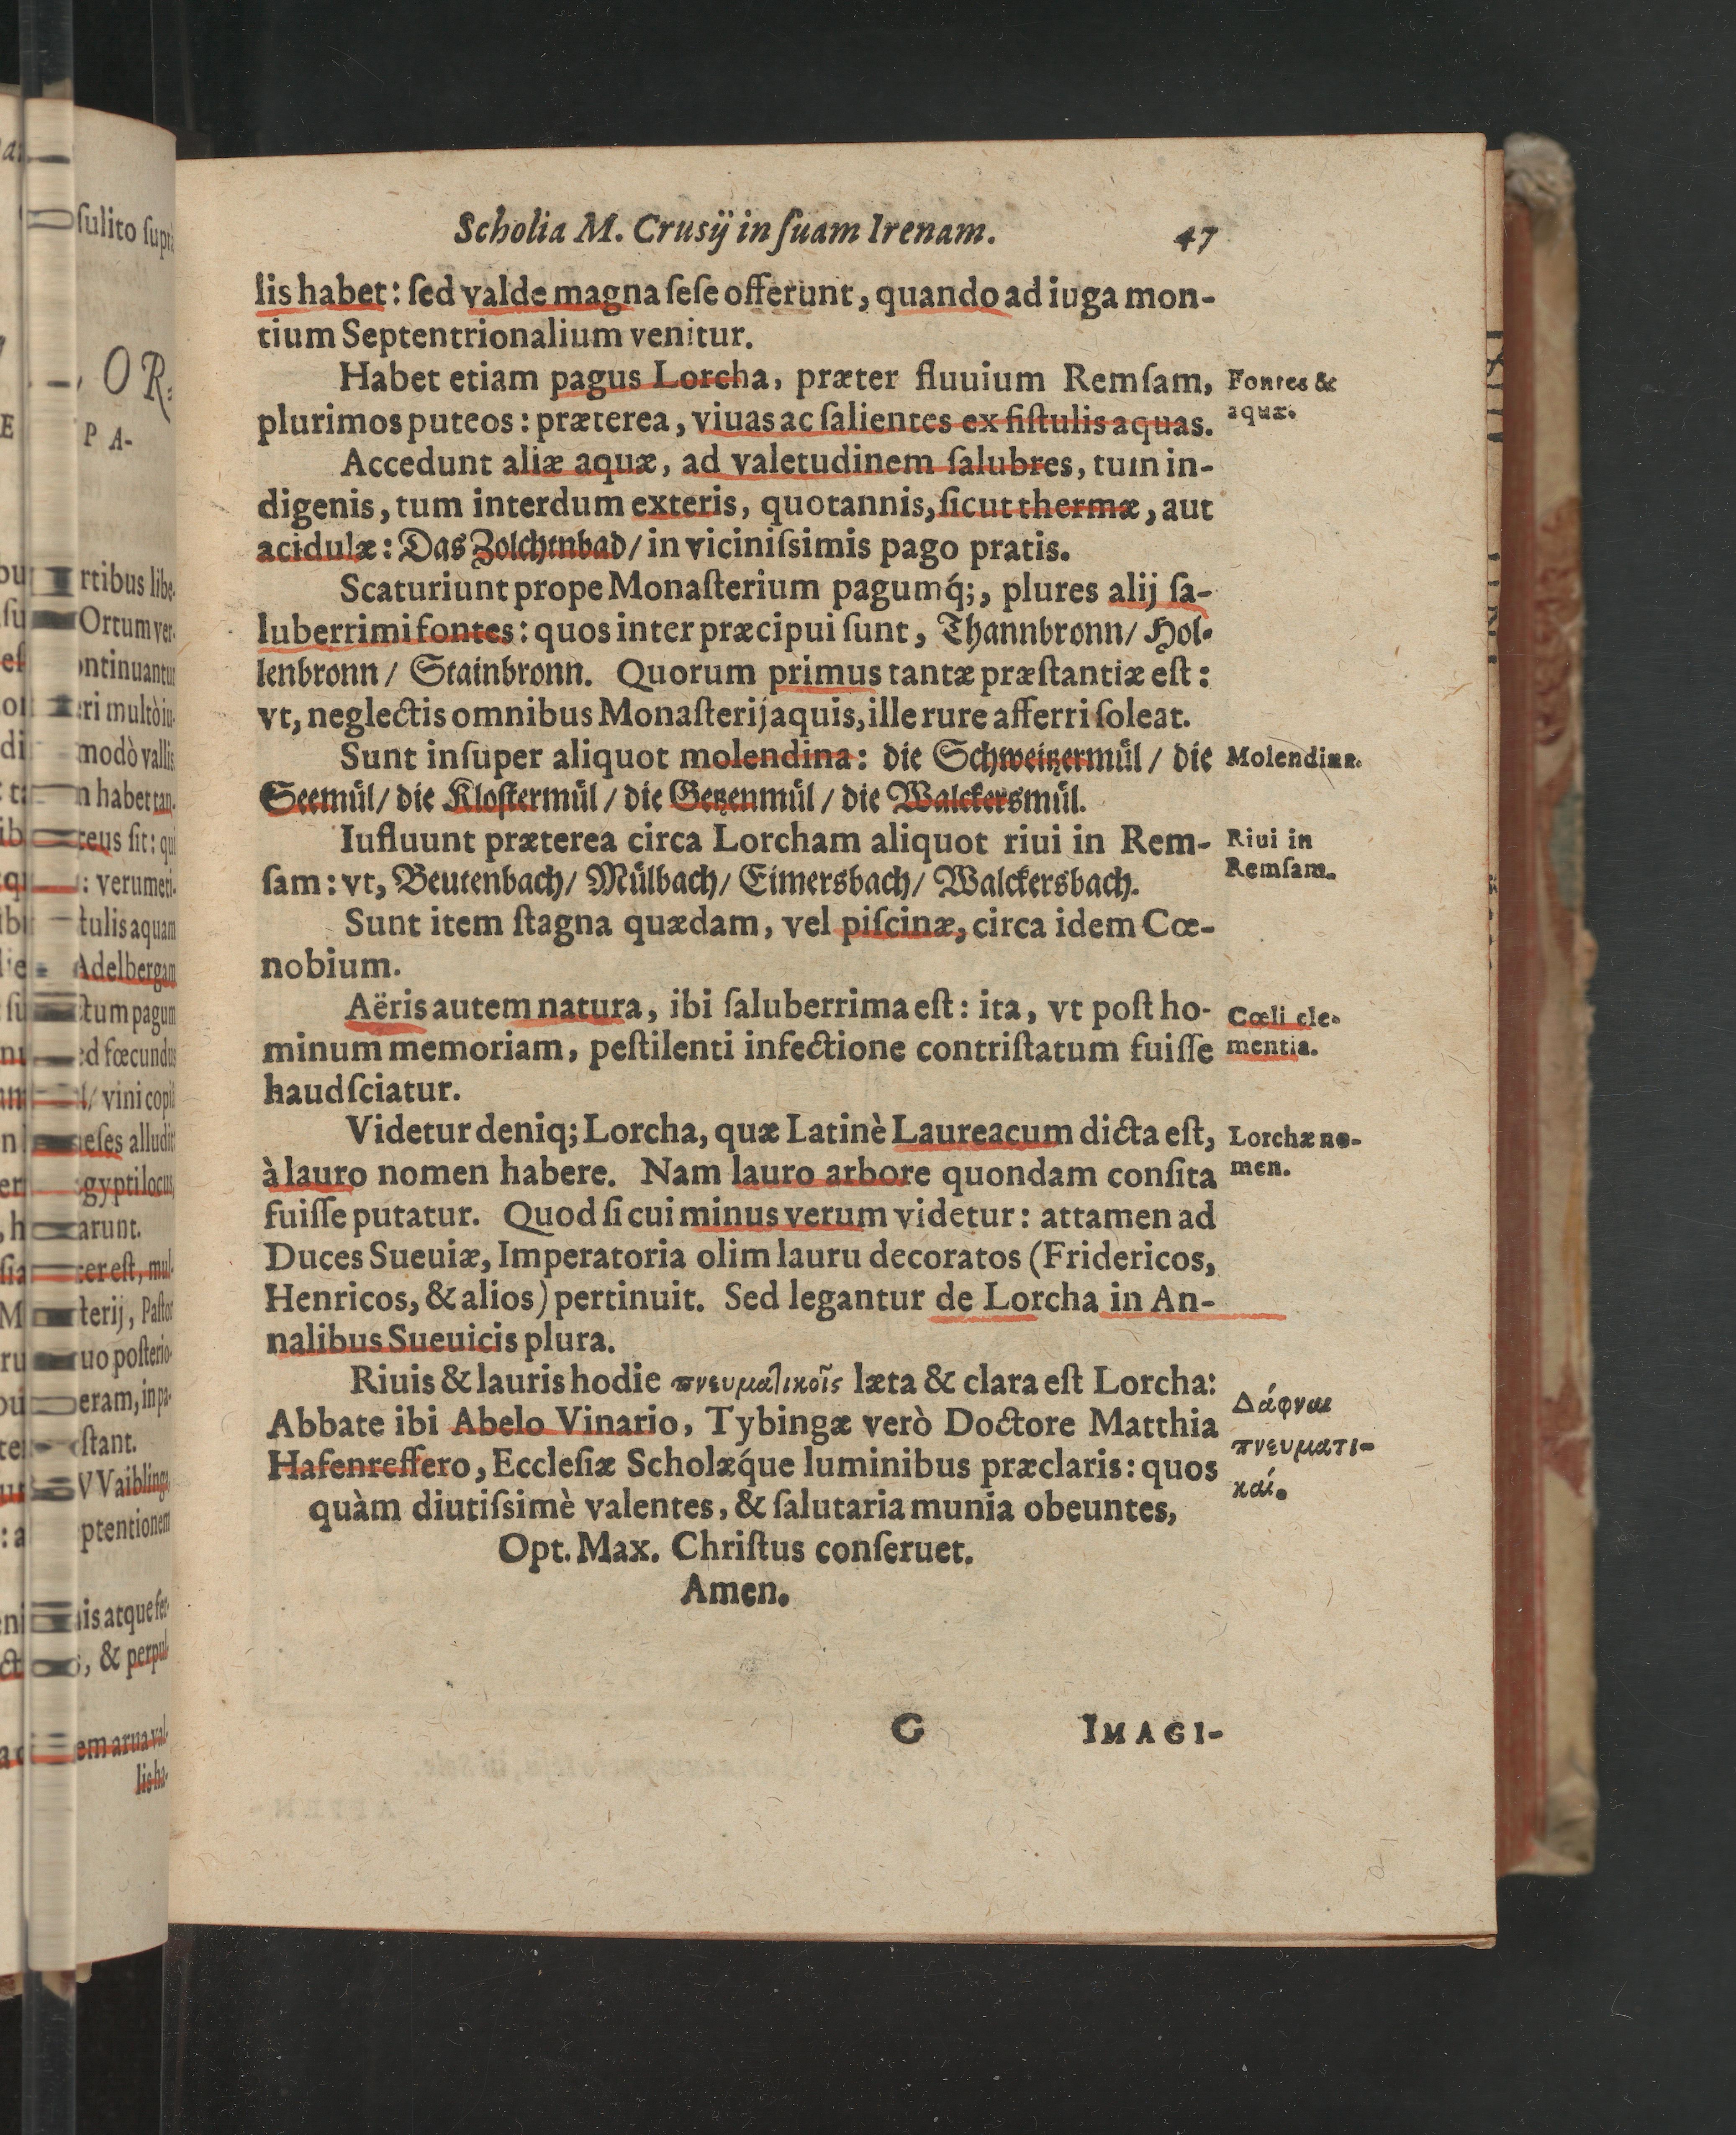 Scholia M. Crusij in ſuam Irenam. 47
lis habet: ſed valde magna ſeſe offerunt, quando ad iuga mon-
tium Septentrionalium venitur.
Habet etiam pagus Lorcha, præter fluuium Remſam,
Fontes &
aquæ.
plurimos puteos: præterea, viuas ac ſalientes ex fiſtulis aquas.
Accedunt aliæ aquæ, ad valetudinem ſalubres, tum in-
digenis, tum interdum exteris, quotannis, ſicut thermæ, aut
acidulæ: Das Zolchenbad/ in viciniſsimis pago pratis.
Scaturiunt prope Monaſterium pagumq́;, plures alij ſa-
luberrimi fontes: quos inter præcipui ſunt, Thannbronn/ Hol-
lenbronn/ Stainbronn. Quorum primus tantæ præſtantiæ eſt:
vt, neglectis omnibus Monaſterij aquis, ille rure afferri ſoleat.
Sunt inſuper aliquot molendina: die Schweitzermuͤl/ die
Molendina.
Seemuͤl/ die Kloſtermuͤl/ die Getzenmuͤl/ die Walckersmuͤl.
Iufluunt præterea circa Lorcham aliquot riui in Rem-
Riui in
Remſam.
ſam: vt, Beutenbach/ Muͤlbach/ Eimersbach/ Walckersbach.
Sunt item ſtagna quædam, vel piſcinæ, circa idem Cœ-
nobium.
Aëris autem natura, ibi ſaluberrima eſt: ita, vt poſt ho-
Cœli cle-
mentia.
minum memoriam, peſtilenti infectione contriſtatum fuiſſe
haud ſciatur.
Videtur deniq; Lorcha, quæ Latinè Laureacum dicta eſt,
Lorchæ no-
men.
à lauro nomen habere. Nam lauro arbore quondam conſita
fuiſſe putatur. Quod ſi cui minus verum videtur: attamen ad
Duces Sueuiæ, Imperatoria olim lauru decoratos (Fridericos,
Henricos, & alios) pertinuit. Sed legantur de Lorcha in An-
nalibus Sueuicis plura.
Riuis & lauris hodie πνευματικοῖς læta & clara eſt Lorcha:
Δάφναι
πνευματι-
καί.
Abbate ibi Abelo Vinario, Tybingæ verò Doctore Matthia
Hafenreffero, Eccleſiæ Scholæq́ue luminibus præclaris: quos
quàm diutiſsimè valentes, & ſalutaria munia obeuntes,
Opt. Max. Chriſtus conſeruet.
Amen.
G IMAGI-